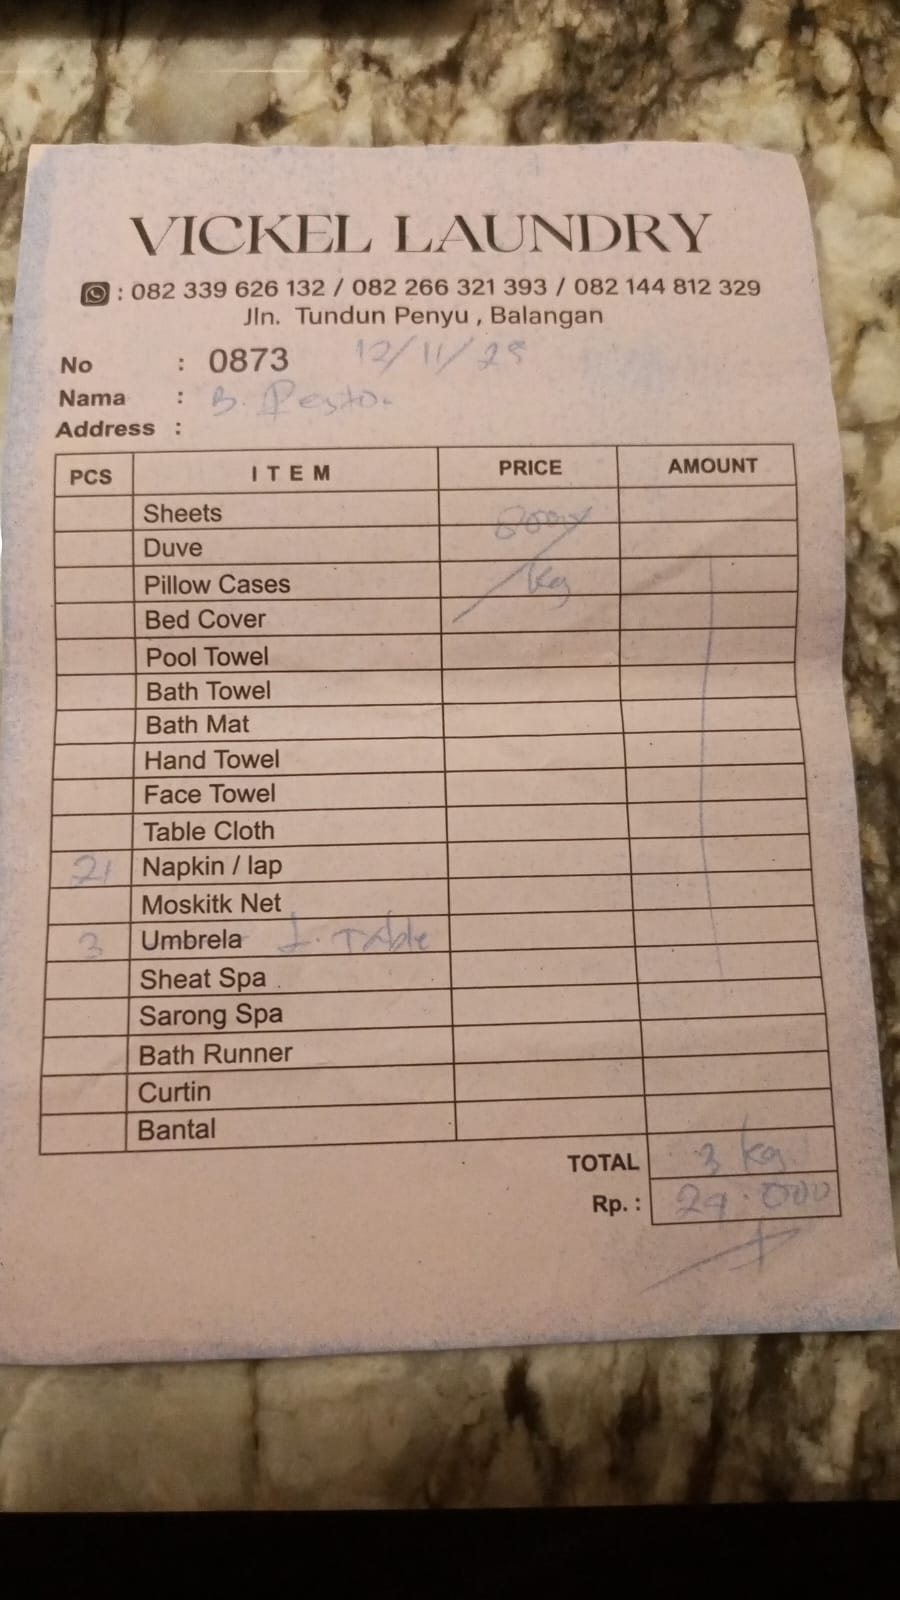 VICKEL LAUNDRY
: 082 339 626 132 / 082 266 321 393 / 082 144 812 329
Jln. Tundun Penyu , Balangan
No : 0873 12/11/25
Nama : B. Pesto.
Address :
PCS ITEM PRICE AMOUNT
Sheets
Duve
Pillow Cases /kg
Bed Cover
Pool Towel
Bath Towel
Bath Mat
Hand Towel
Face Towel
Table Cloth
21 Napkin / lap
Moskitk Net
3 Umbrela L. Table
Sheat Spa
Sarong Spa
Bath Runner
Curtin
Bantal
TOTAL 3 kg
Rp. : 24.000